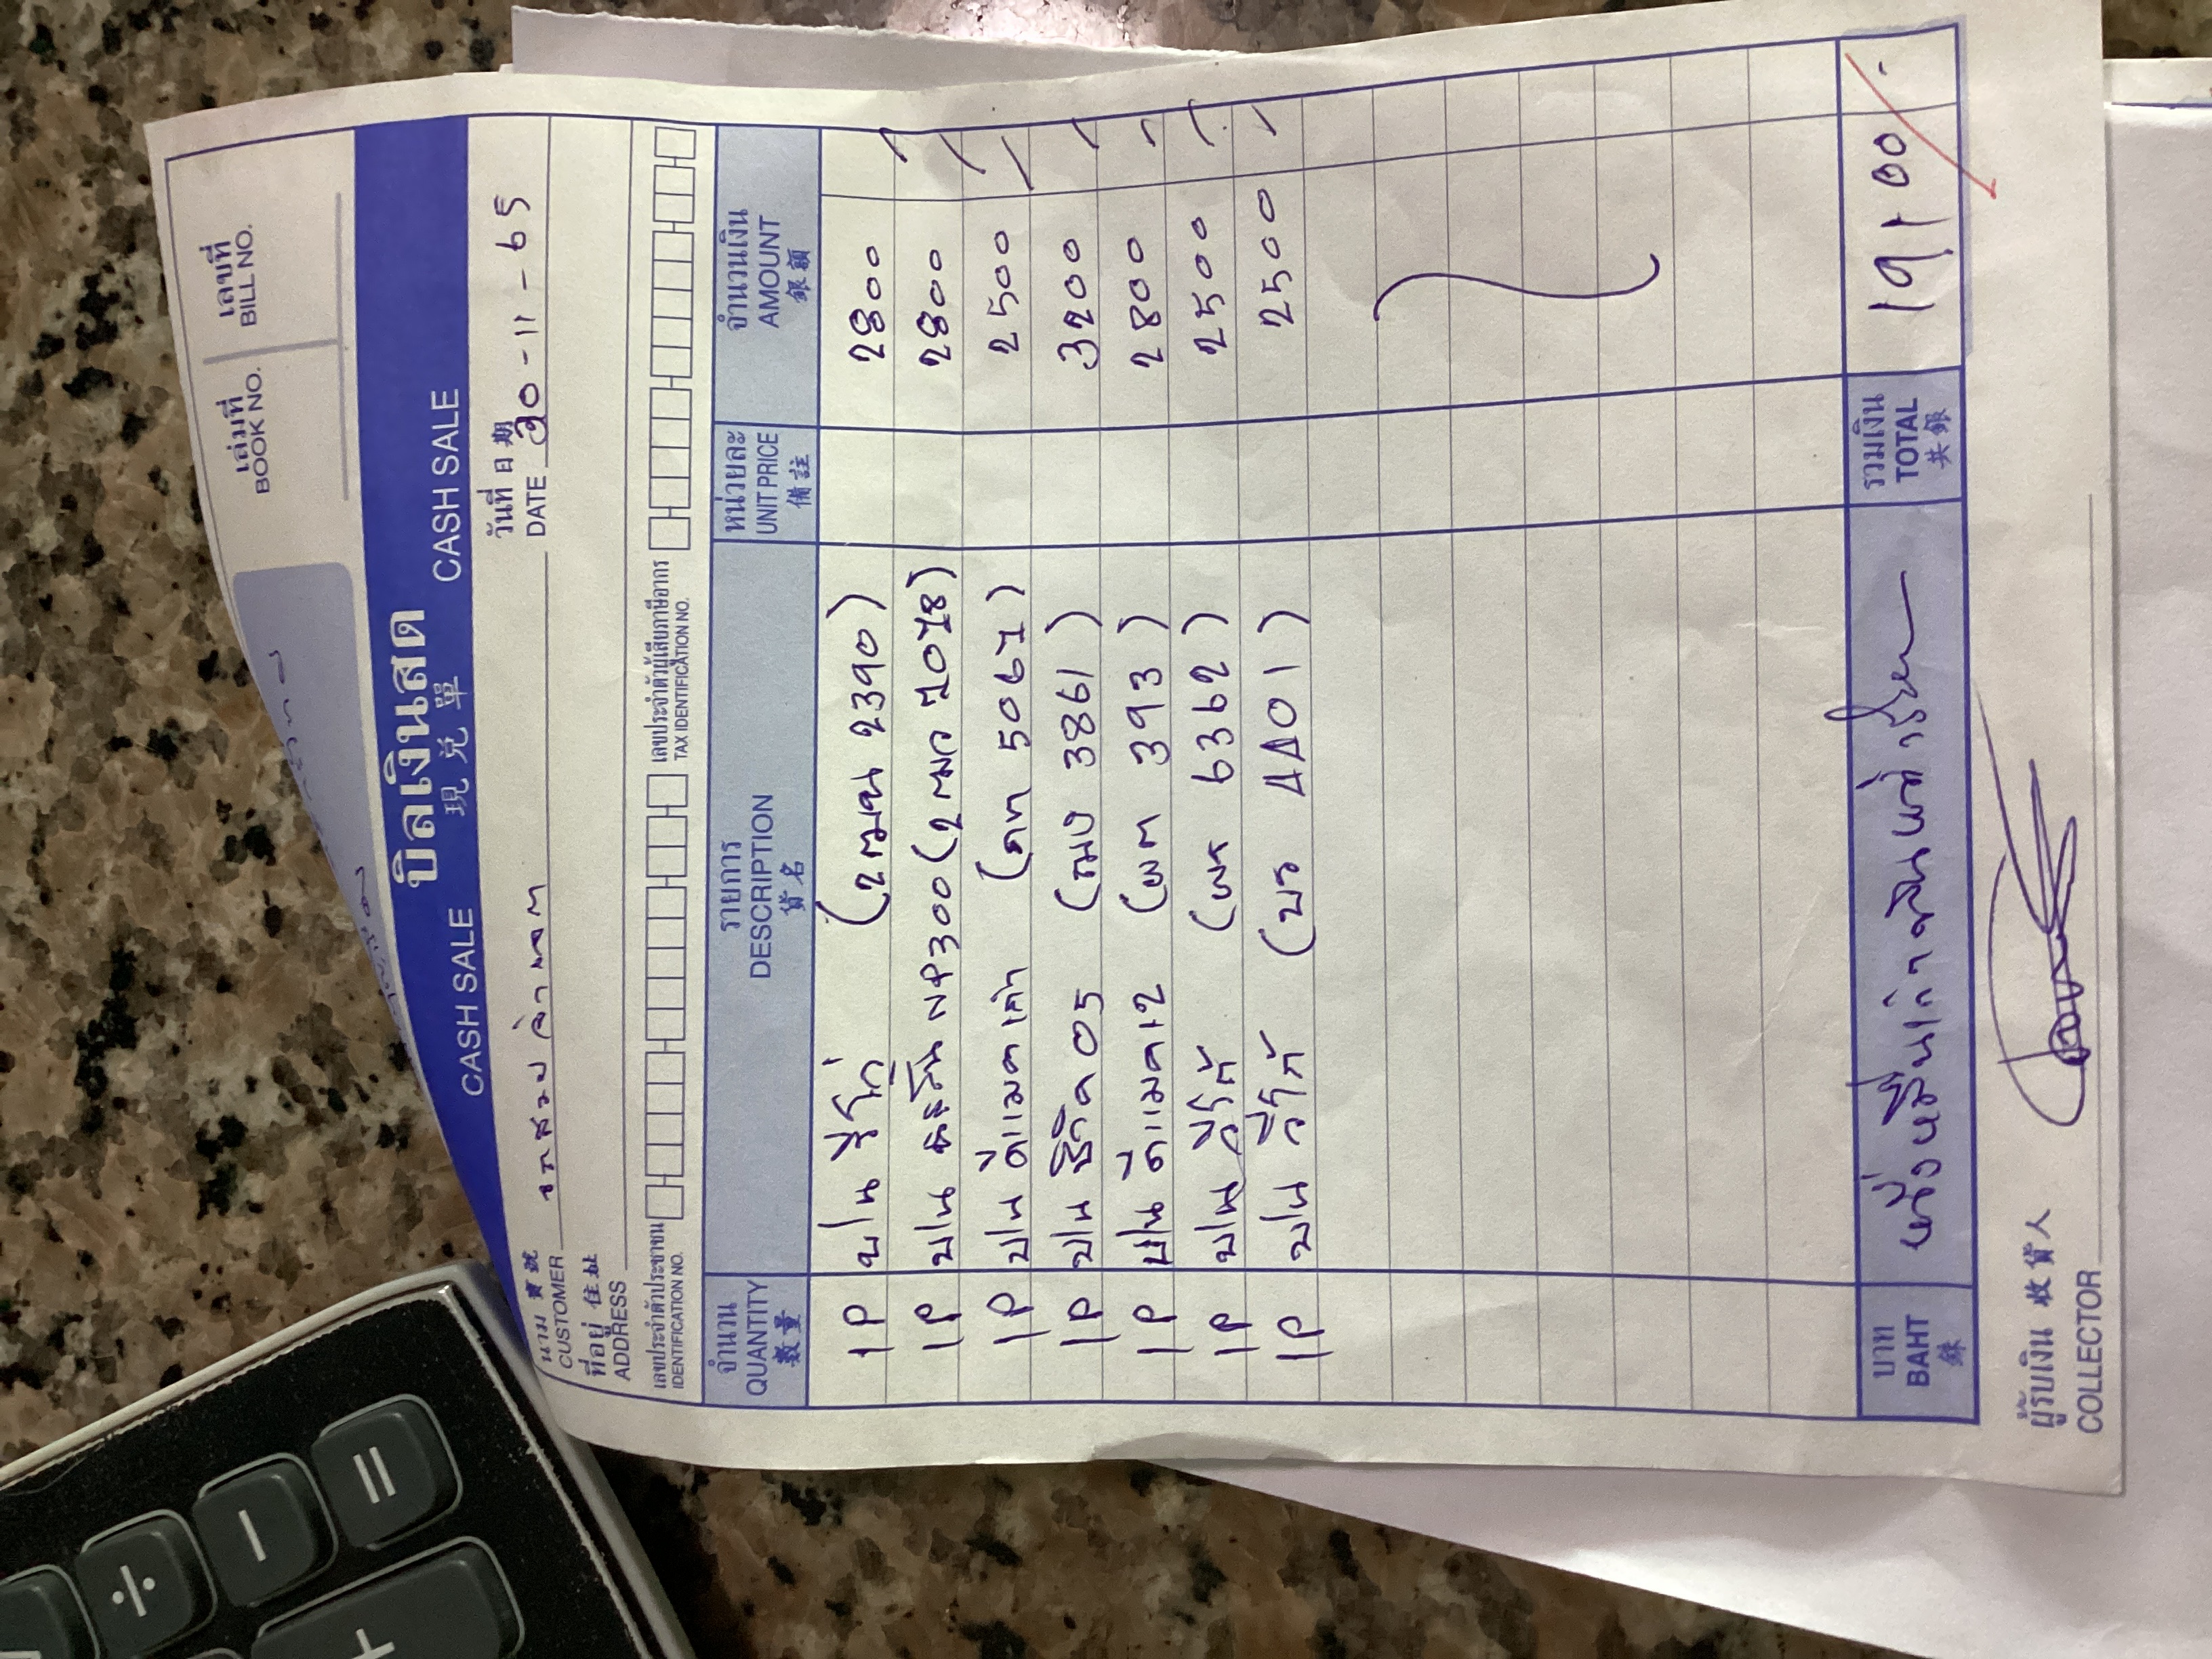 เล่มที่ เลขที่
BOOK NO. BILL NO.
บิลเงินสด
CASH SALE 現兌單 CASH SALE
วันที่ 日期
DATE 30-11-65
นาม 寶號
CUSTOMER
ที่อยู่ 住址
ADDRESS
เลขประจำตัวประชาชน เลขประจำตัวผู้เสียภาษีอากร
IDENTIFICATION NO. TAX IDENTIFICATION NO.
จำนวน รายการ หน่วยละ จำนวนเงิน
QUANTITY DESCRIPTION UNIT PRICE AMOUNT
數量 貨名 備註 銀額
1P ปาน วีโก้ (2ฒฉ 2390) 2800
1P ปาน NP300 (2ฒว 7078) 2800
1P ปาน ดีแมคเก่า (ถท 5067) 2500
1P ปาน 05 (ฒง 3861) 3200
1P ปาน ดีแมค 12 (ผต 393) 2800
1P ปาน วีโก้ (ผร 6362) 2500
1P ปาน วีโก้ (บว 4401) 2500
บาท หนึ่งหมื่นเก้าพันหนึ่งร้อย รวมเงิน 19100 -
BAHT TOTAL
銖 共銀
ผู้รับเงิน 收貨人
COLLECTOR